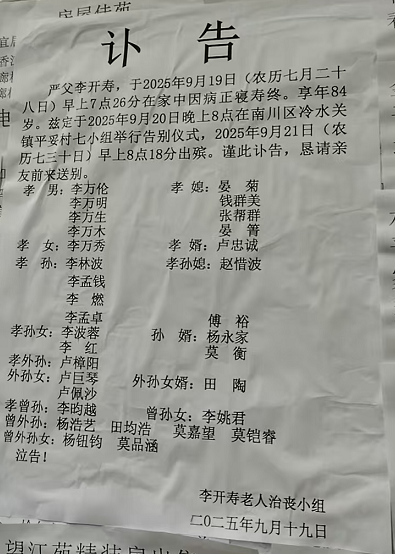 房屋佳苑
讣 告
严父李开寿，于2025年9月19日（农历七月二十
八日）早上7点26分在家中因病正寝寿终。享年84
岁。兹定于2025年9月20日晚上8点在南川区冷水关
镇平妥村七小组举行告别仪式，2025年9月21日（农
历七三十日）早上8点18分出殡。谨此讣告，恳请亲
友前来送别。
孝 男：李万伦 孝 媳：晏 菊
李万明 钱群美
李万生 张帮群
李万木 晏 箐
孝 女：李万秀 孝 婿：卢忠诚
孝 孙：李林波 孝孙媳：赵惜波
李孟钱
李 燃
李孟卓 傅 裕
孝孙女：李波蓉 孙 婿：杨永家
李 红 莫 衡
孝外孙：卢樟阳
外孙女：卢巨琴 外孙女婿：田 陶
卢佩沙
孝曾孙：李昀越 曾孙女：李姚君
曾外孙：杨浩艺 田均浩 莫嘉望 莫铠睿
曾外孙女：杨钮钧 莫品涵
泣告！
李开寿老人治丧小组
二〇二五年九月十九日
望江苑精装房出售